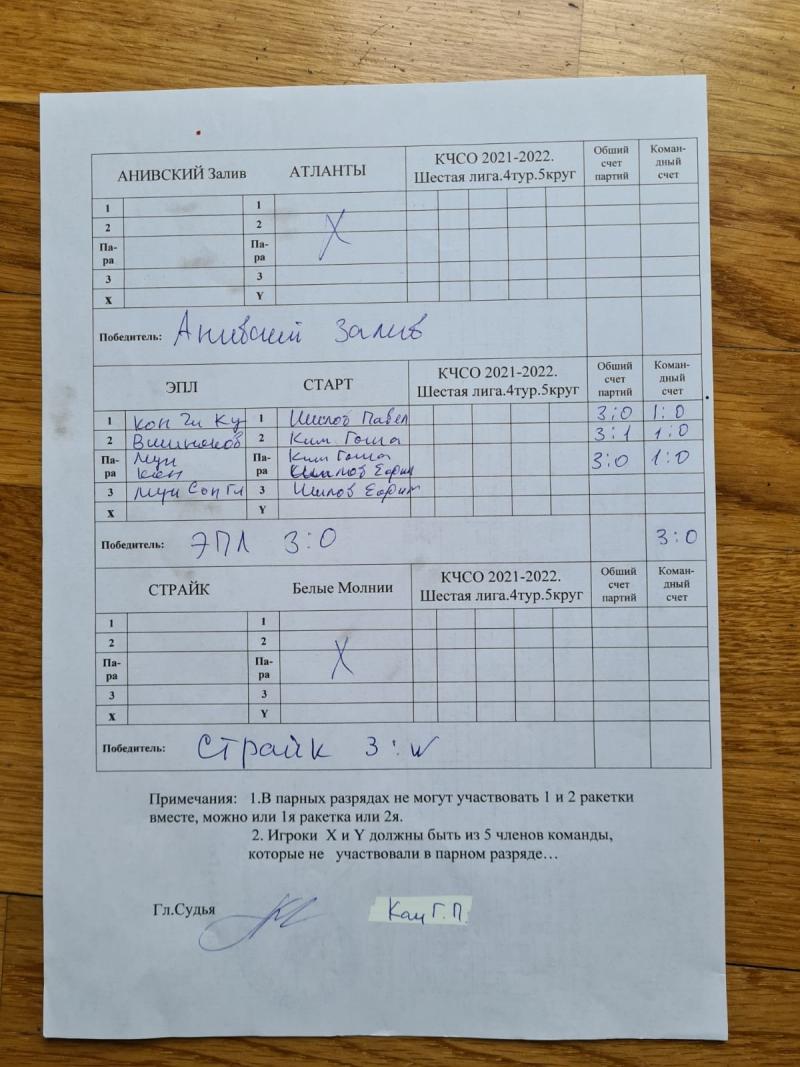 АНИВСКИЙ Залив АТЛАНТЫ КЧСО 2021-2022. Шестая лига.4тур.5круг Общий счет партий Коман-дный счет
1 1
2 2 X
Па-ра Па-ра
3 3
X Y
Победитель: Анивский Залив
ЭПЛ СТАРТ КЧСО 2021-2022. Шестая лига.4тур.5круг Общий счет партий Коман-дный счет
1 Кон Ги Ку 1 Шилов Павел 3:0 1:0
2 Вишняков 2 Ким Гоша 3:1 1:0
Па-ра Мун Па-ра Ким Гоша 3:0 1:0
3 Мун Сон Ги 3 Шилов
X Y
Победитель: ЭПЛ 3:0 3:0
СТРАЙК Белые Молнии КЧСО 2021-2022. Шестая лига.4тур.5круг Общий счет партий Коман-дный счет
1 1
2 2 X
Па-ра Па-ра
3 3
X Y
Победитель: Страйк 3:w
Примечания: 1.В парных разрядах не могут участвовать 1 и 2 ракетки
вместе, можно или 1я ракетка или 2я.
2. Игроки X и Y должны быть из 5 членов команды,
которые не участвовали в парном разряде…
Гл.Судья Кан Г.П